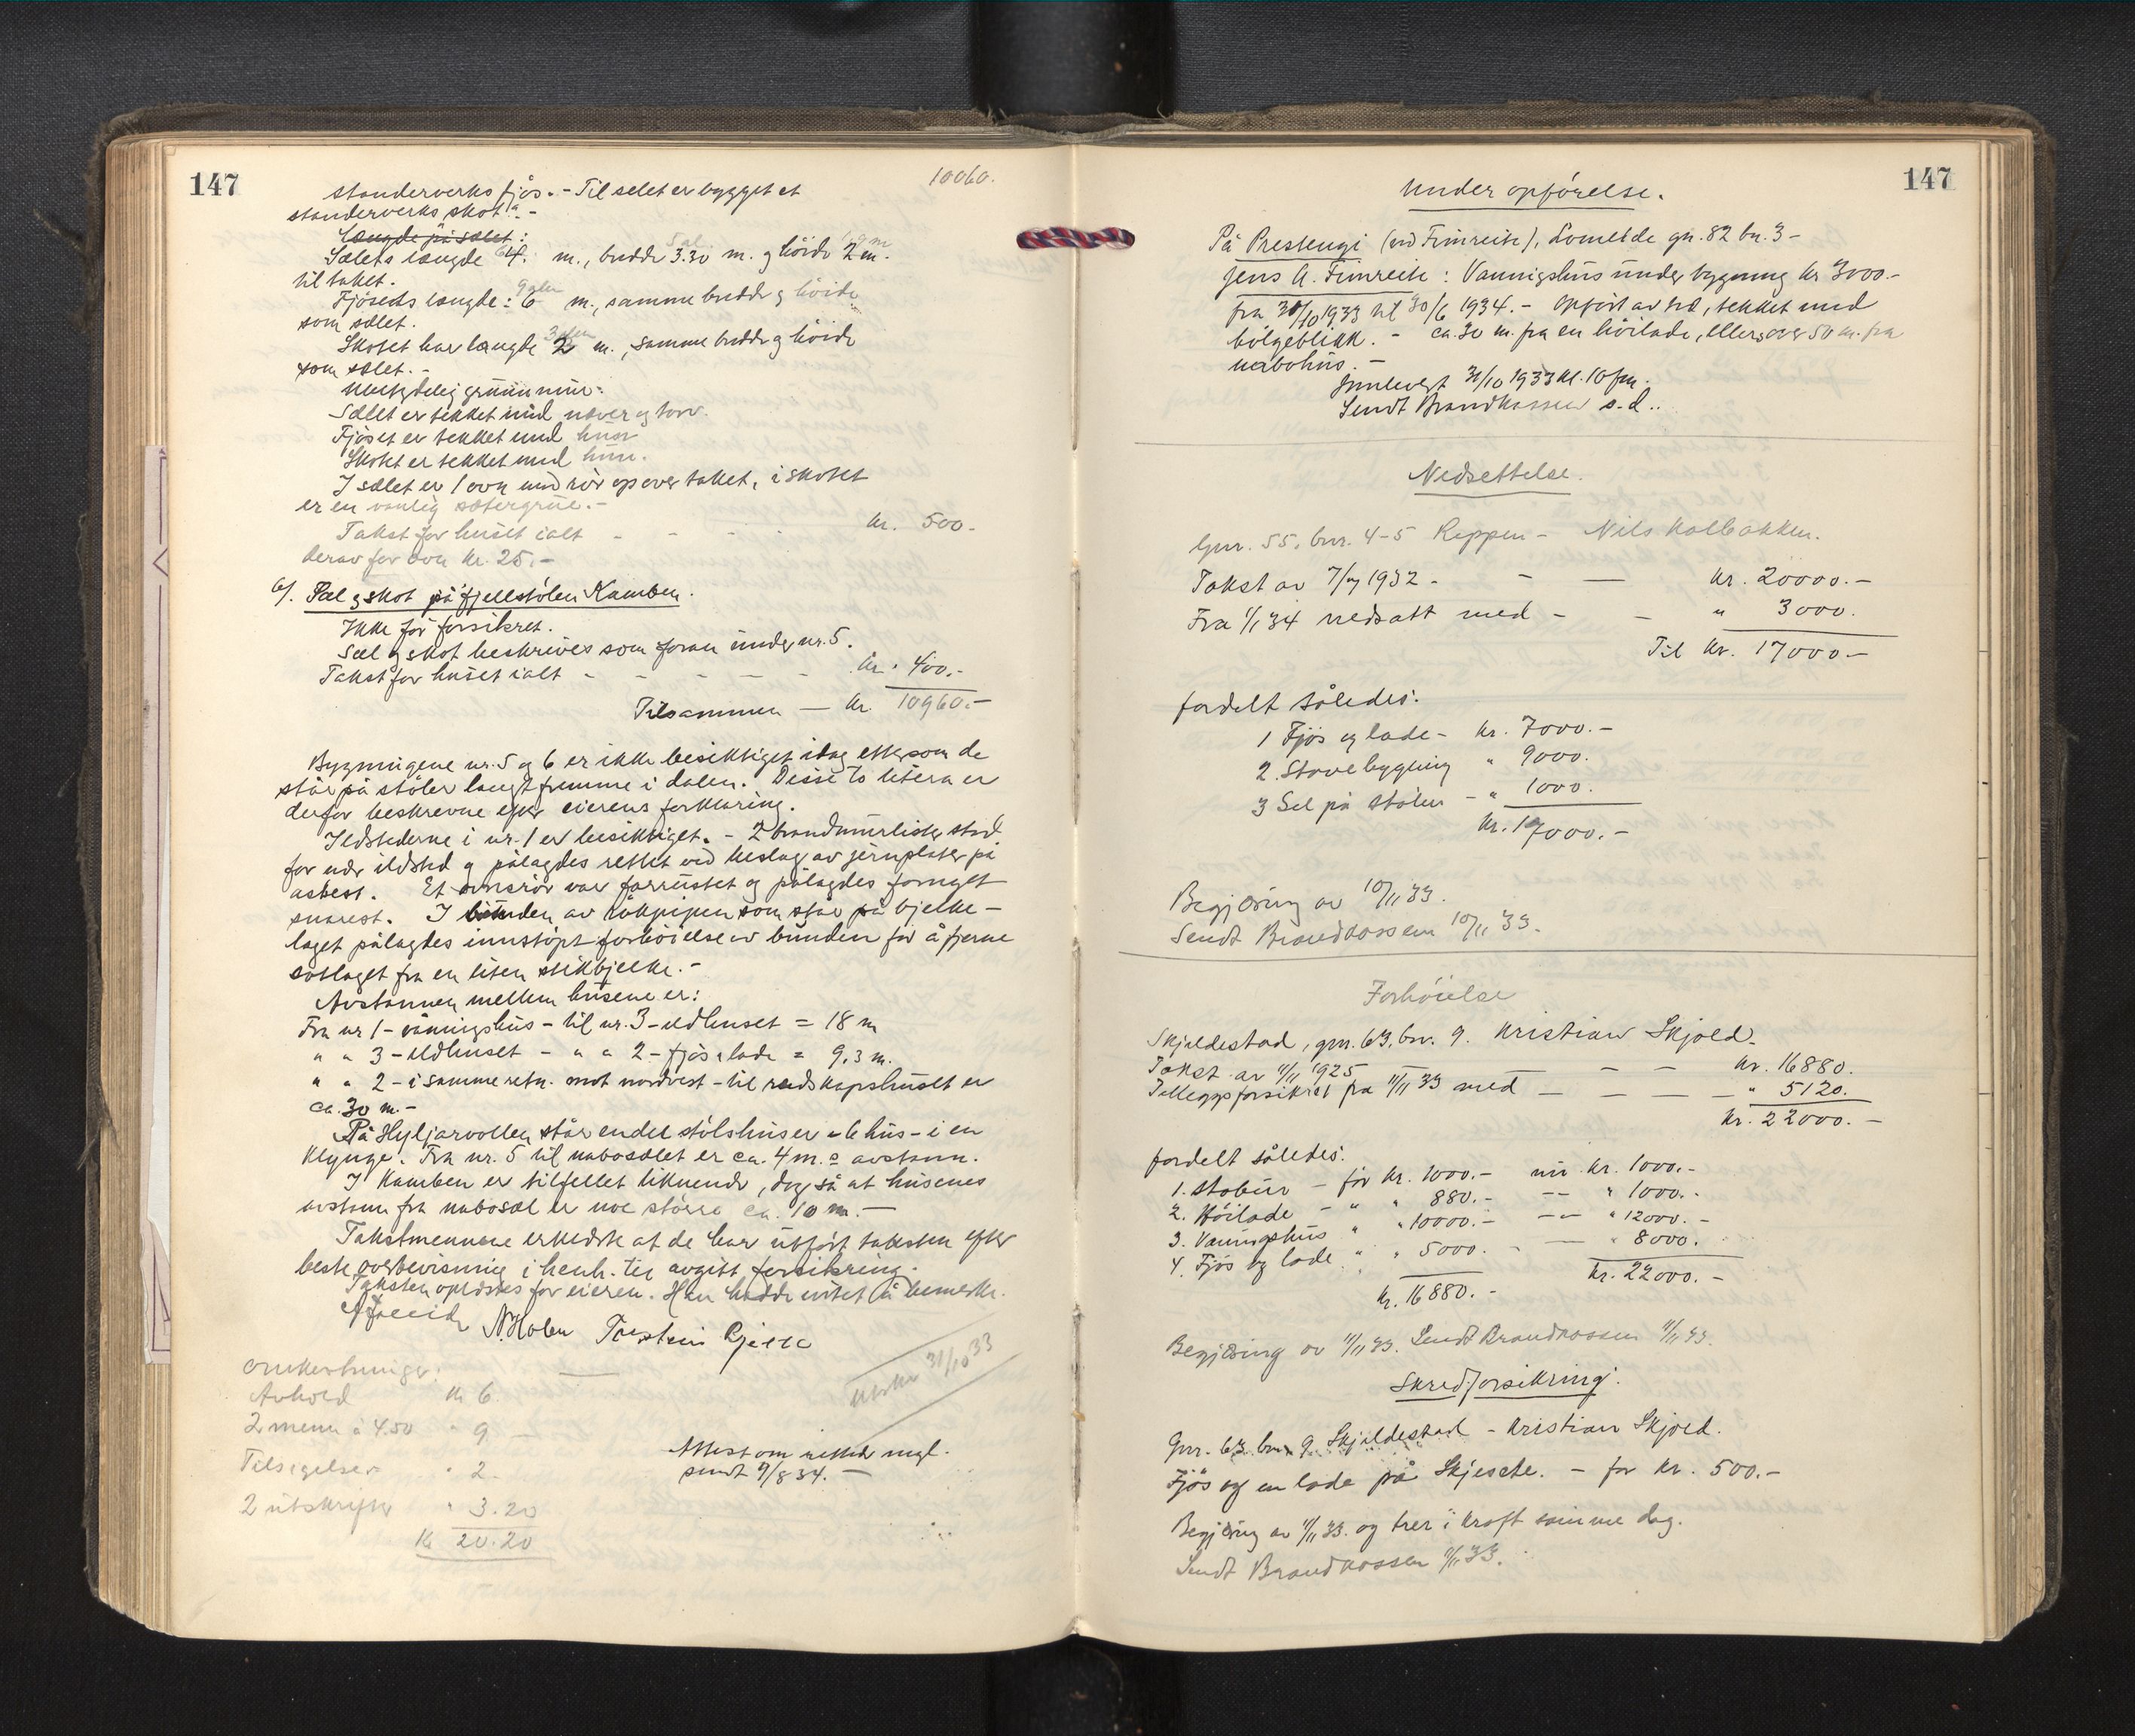 147
10060.
standerverks fjøs. - Til selet er bygget et
standerverks skot. -
Længde på sælet:
Sælets længde 4. m., bredde 3.30 m. og höide 2 m.
til taket.
Fjösets længde: 6 m., samme bredde og höide
som sælet.
Skotet har længde 2 m., samme bredde og höide
som sælet. -
Ubetydelig grunnmur.
Sælet er tekket med næver og torv.
Fjöset er tekket med
Skotet er tekket med
I sælet er 1 ovn med rör op over taket, i skotet
er en vanlig sætergrue. -
Takst for huset ialt - - - - kr. 500.-
derav for ovn kr. 25.-
6/. Sæl og skot på fjellstölen Kamben.
Ikke för forsikret.
Sæl og skot beskrives som foran under nr. 5.
Takst for huset ialt - - - - - kr. 400.-
Tilsammen — kr. 10960.-
Bygningene nr. 5 og 6 er ikke besiktiget idag ettersom de
står på stöler langt fremme i dalen. Disse to litera er
derfor beskrevne efter eierens forklaring.
Ildstederne i nr. 1 er besiktiget. - 2 brandmurlister stod
for nær ildsted og pålagdes rettet ved beslag av jernplater på
asbest. Et ovnsrör var forrustet og pålagdes fornyet
snarest. I bunden av rökpipen som står på bjelke-
laget pålagdes innstöpt forhöielse av bunden for å fjerne
sotlaget fra en liten stikbjelke. -
Avstannen mellem husene er:
Fra nr 1 - våningshus - til nr. 3 - eldhuset = 18 m
" " 3 - eldhuset - " " 2 - fjös & lade = 9,3 m.
" " 2 - i samme retn. mot nordvest - til redskapshuset er
ca. 30 m. -
På Hyljarvollen står endel stölshuser - 6 hus - i en
klynge. Fra nr. 5 til nabosælet er ca. 4 m.s avstann.
I Kamben er tilfellet liknende, dog så at husenes
avstann fra nabosæl er noe större ca. 10 m. —
Takstmennene erklærte at de har utfört taksten efter
beste overbevisning i henh. til avgitt forsikring.
Taksten oplæstes for eieren. Han hadde intet å bemerke.
N. Holen Torstein Gjerde
Omkostninger:
Avhold kr 6.
2 menn à 4.50 " 9 —
Tilsigelser " 2.
2 utskrifter " 3.20
Kr 20.20
31/10 33
Attest om rettede mgl.
sendt 9/8 34. —
147
Under opförelse.
På Prestengi (ved Fimreite), Lomelde gn. 82 bn. 3 -
Jens A. Fimreite: Vanningshus under bygning kr 3000.-
fra 30/10 1933 til 30/6 1934. - Opfört av tre, tekket med
bölgeblikk. - ca. 30 m. fra en höilade, ellers over 50 m. fra
nabohus. -
Innlevert 31/10 1933 kl. 10 fm.
Sendt Brandkassen s.d..
Nedsettelse.
Gnr. 55, bnr. 4-5 Reppen - Nils Kolbakken.
Takst av 7/7 1932 - - — kr. 20000.-
Fra 1/1 34 nedsatt med - - " 3000.
Til kr. 17000.-
fordelt således:
1 Fjös og lade - kr. 7000.-
2. Stovebygning " 9000.
3 Sel på stölen - " 1000.
kr. 17000.-
Begjæring av 10/11 33.
Sendt Brandkassen 10/11 33.
Forhöielse
Skjeldestad, gnr. 63, bnr. 9. Kristian Skjeld.
Takst av 11/11 1925 — — - - kr. 16880.
Tilleggsforsikret fra 11/11 33 med — - — — " 5120.
kr. 22000.-
fordelt således:
1. Stabur - för kr. 1000.- nu kr. 1000.-
2. Höilade - " " 880.- -- " 1000.-
3. Vånningshus " " 10000.- -- " 12000.-
4. Fjös og lade " " 5000. - — " 8000.
kr. 16880.- kr. 22000.-
Begjæring av 11/11 33. Sendt Brandkassen 11/11 33.
Skredforsikring.
Gnr. 63 bnr. 9 Skjeldestad - Kristian Skjeld.
Fjös og en lade på - for kr. 500.-
Begjæring av 11/11 33. og trer i kraft samme dag.
Sendt Brandkassen 11/11 33.